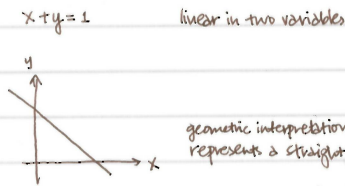 x+y=1 linear in two variables
y
x
geometric interpretation
represents a straight